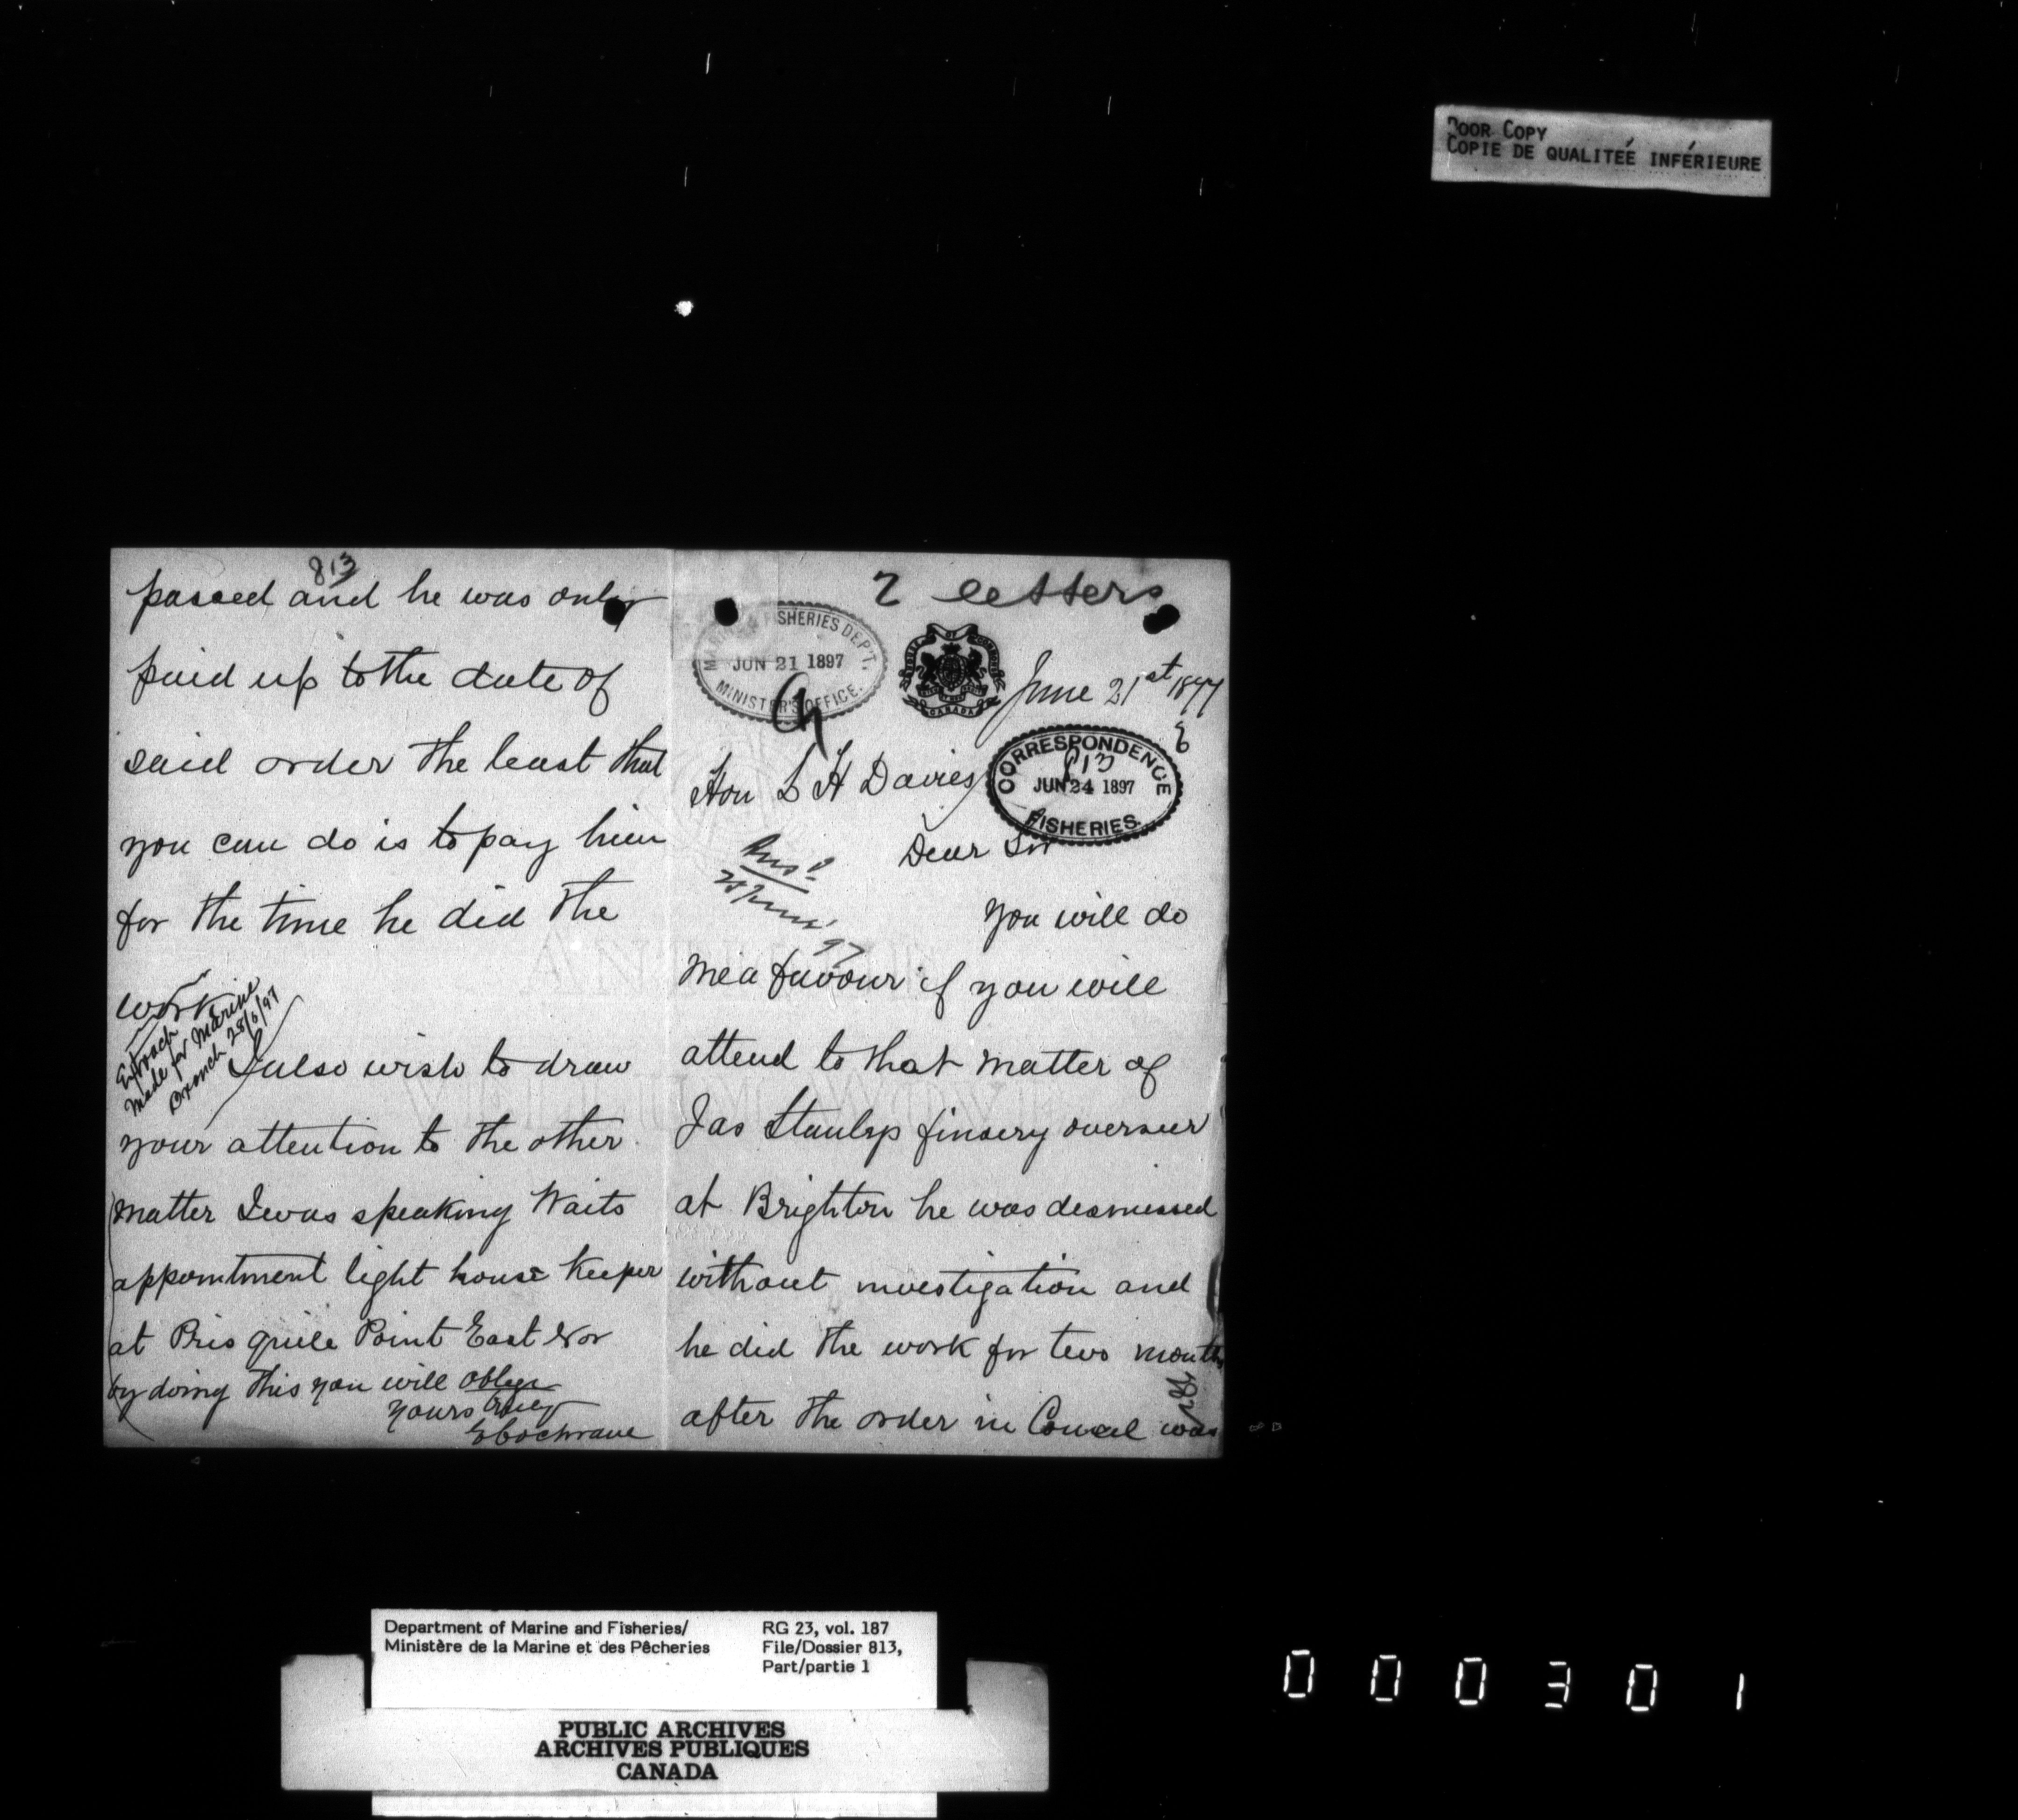 POOR COPY
COPIE DE QUALITEÉ INFÉRIEURE
2 letters
MARINE & FISHERIES DEP'T.
JUN 21 1897
MINISTER'S OFFICE.
HOUSE OF COMMONS
CANADA
June 21st 1897
CORRESPONDENCE
813
JUN 24 1897
FISHERIES.
Hon L H Davies
Dear Sir
Ansd
28 June 97
you will do
me a favour if you will
attend to that matter of
Jas Stanley finsery overseer
at Brighton he was desmissed
without investigation and
he did the work for two months
after the order in Councel was
813
passed and he was only
paid up to the date of
said order the least that
you can do is to pay him
for the time he did the
work
Extract
made for Marine
Branch 28/6/97
I also wish to draw
your attention to the other
matter I was speaking Waits
appointment light house Keeper
at Pris quile Point East Nor
by doing this you will oblige
yours truly
E Cochrane
Department of Marine and Fisheries/
Ministère de la Marine et des Pêcheries
RG 23, vol. 187
File/Dossier 813,
Part/partie 1
PUBLIC ARCHIVES
ARCHIVES PUBLIQUES
CANADA
000301